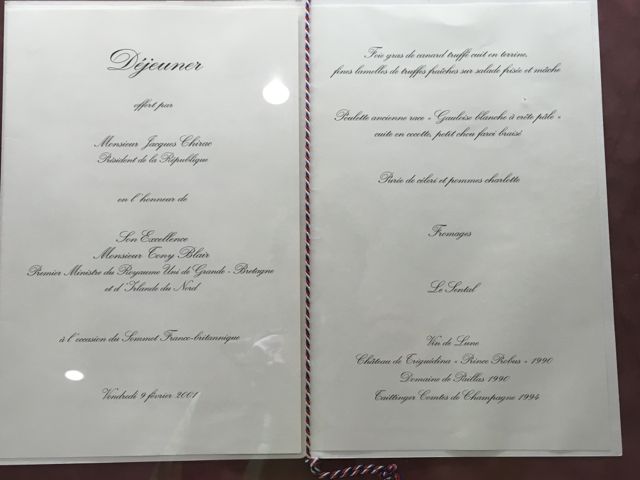 Déjeuner
offert par
Monsieur Jacques Chirac
Président de la République
en l'honneur de
Son Excellence
Monsieur Tony Blair
Premier Ministre du Royaume Uni de Grande - Bretagne
et d'Irlande du Nord
à l'occasion du Sommet Franco-britannique
Vendredi 9 février 2001
Foie gras de canard truffé cuit en terrine,
fines lamelles de truffes fraîches sur salade frisée et mâche
Poulette ancienne race « Gauloise blanche à crête pâle »
cuite en cocotte, petit chou farci braisé
Purée de céleri et pommes charlotte
Fromages
Le Sental
Vin de Lune
Château de Triguédina « Prince Probus » 1990
Domaine de Paillas 1990
Taittinger Comtes de Champagne 1994